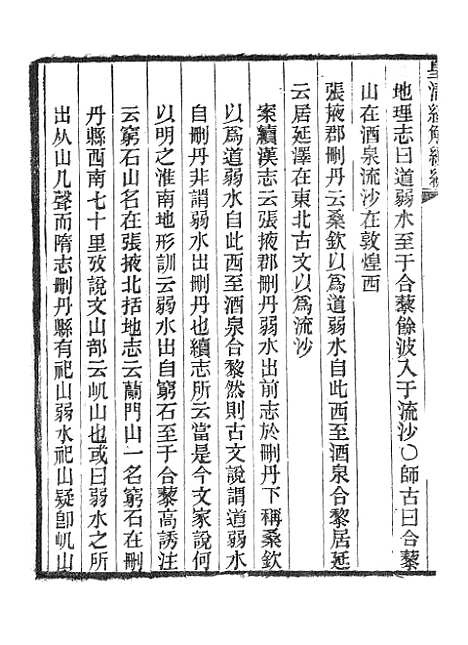 皇清經解續編
地理志曰道弱水至于合藜餘波入于流沙〇師古曰合藜
山在酒泉流沙在敦煌西
張掖郡刪丹云桑欽以爲道弱水自此西至酒泉合黎居延
云居延澤在東北古文以爲流沙
案續漢志云張掖郡刪丹弱水出前志於刪丹下稱桑欽
以爲道弱水自此西至酒泉合黎然則古文說謂道弱水
自刪丹非謂弱水出刪丹也續志所云當是今文家說何
以明之淮南地形訓云弱水出自窮石至于合藜高誘注
云窮石山名在張掖北括地志云蘭門山一名窮石在刪
丹縣西南七十里攷說文山部云屼山也或曰弱水之所
出从山几聲而隋志刪丹縣有祀山弱水祀山疑卽屼山